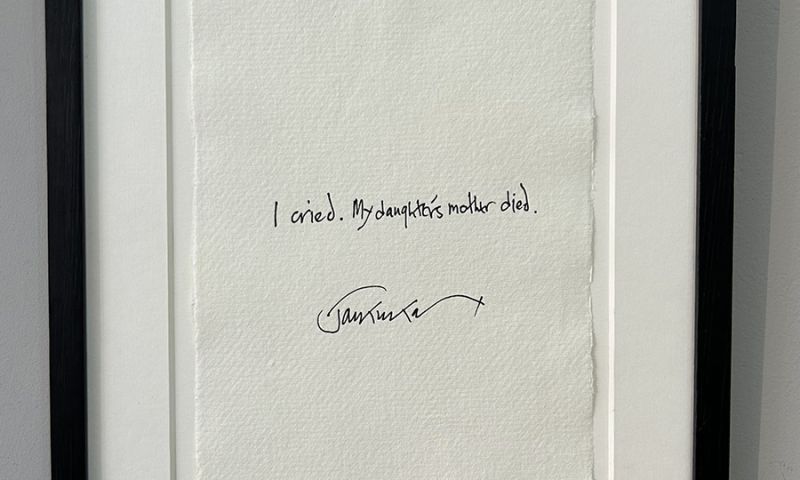 I cried. My daughter's mother died.